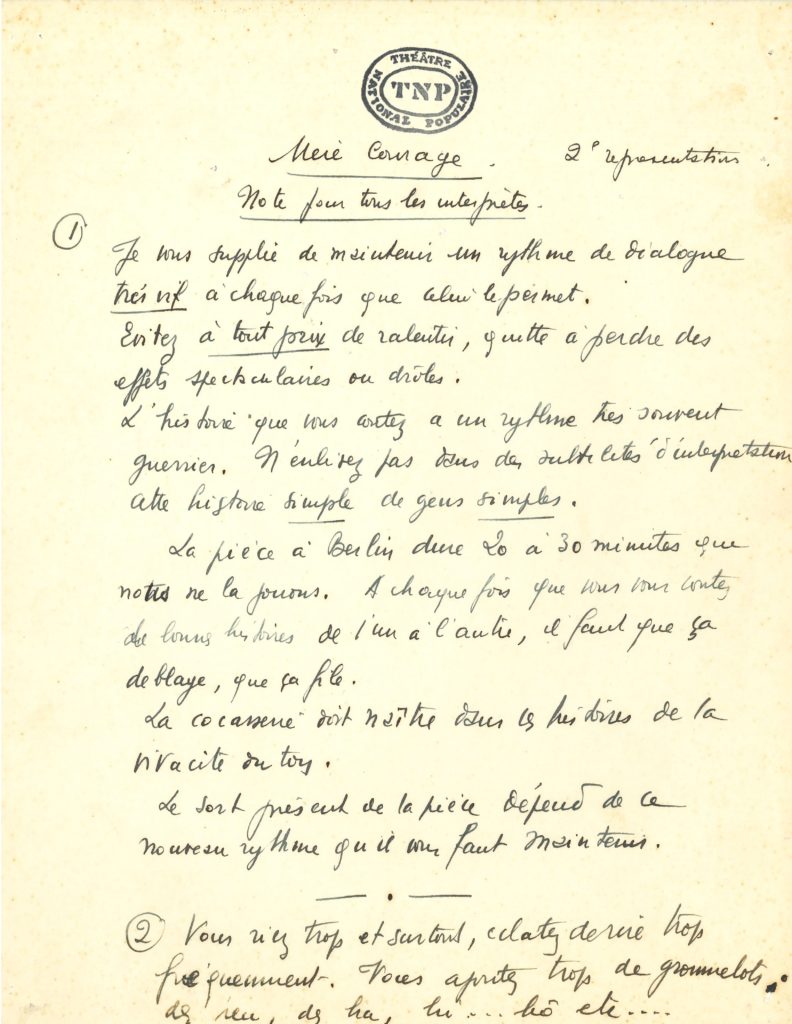 THÉÂTRE
NATIONAL POPULAIRE
TNP
Mère Courage. 2e representation.
Note pour tous les interprètes.
1
Je vous supplie de maintenir un rythme de dialogue
très vif à chaque fois que celui le permet.
Evitez à tout prix de ralentir, quitte à perdre des
effets spectaculaires ou drôles.
L'histoire que vous contez a un rythme très souvent
guerrier. N'enlisez pas dans des subtilités d'interprétation
cette histoire simple de gens simples.
La pièce à Berlin dure 20 à 30 minutes que
nous ne la jouons. A chaque fois que vous vous contez
de longues histoires de l'un à l'autre, il faut que ça
deblaye, que ça file.
La cocasserie doit naître dans ces histoires de la
vivacité du ton.
Le sort présent de la pièce dépend de ce
nouveau rythme qu'il vous faut maintenir.
2 Vous riez trop et surtout, eclatez de rire trop
fréquemment. Vous ajoutez trop de grommelots,
des heu, des ha, hi.... hô etc....